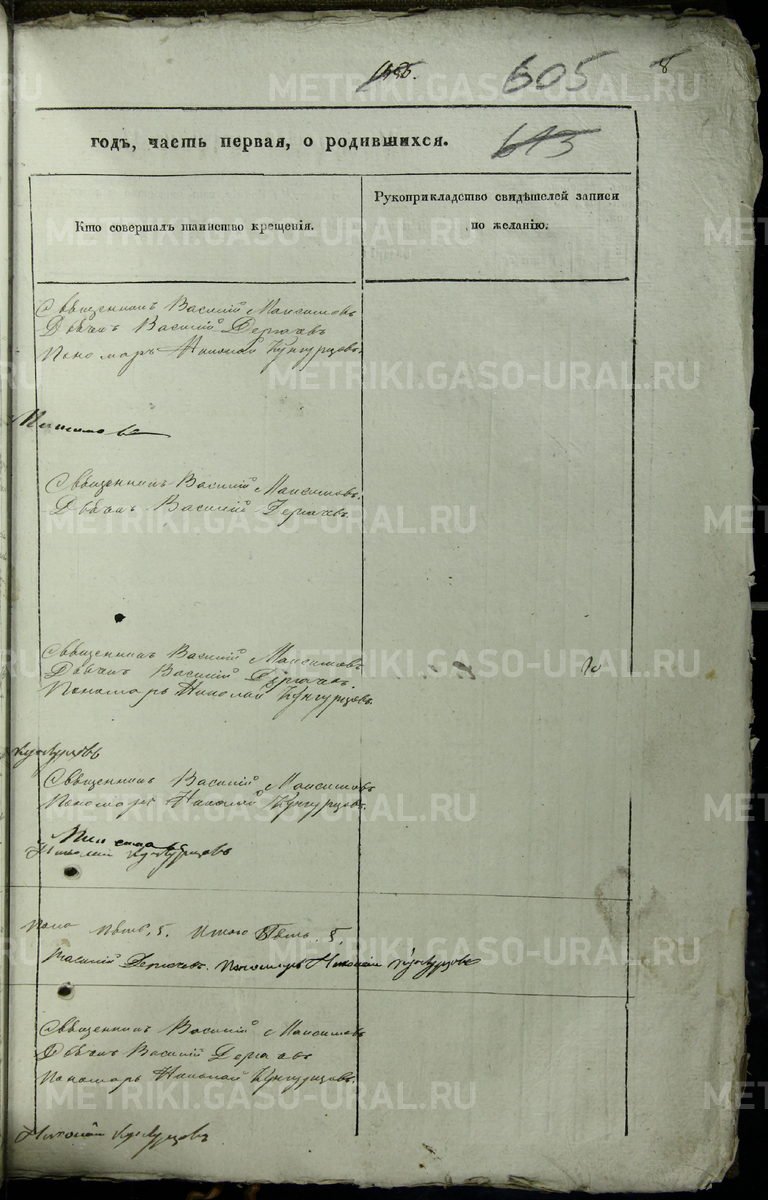 605
8
613
годъ, часть первая, о родившихся.
Кто совершалъ таинство крещенія.
Рукоприкладство свидѣтелей записи
по желанію.
Священникъ Василий Максимовъ
Дьячекъ Василий Дергачевъ
Пономарь Николай Кунгурцовъ.
Максимовъ
Священникъ Василий Максимовъ.
Дьячекъ Василий Дергачевъ.
Священникъ Василий Максимовъ
Дьячекъ Василий Дергачевъ
Пономарь Николай Кунгурцовъ.
Кунгурцовъ
Священникъ Василий Максимовъ
Пономарь Николай Кунгурцовъ.
Николай Кунгурцовъ
пять. 5. Итого Пять. 5.
Василий Дергачевъ. Пономарь Николай Кунгурцовъ
Священникъ Василий Максимовъ
Дьячекъ Василий Дергачевъ
Пономарь Николай Кунгурцовъ.
Николай Кунгурцовъ
METRIKI.GASO-URAL.RU